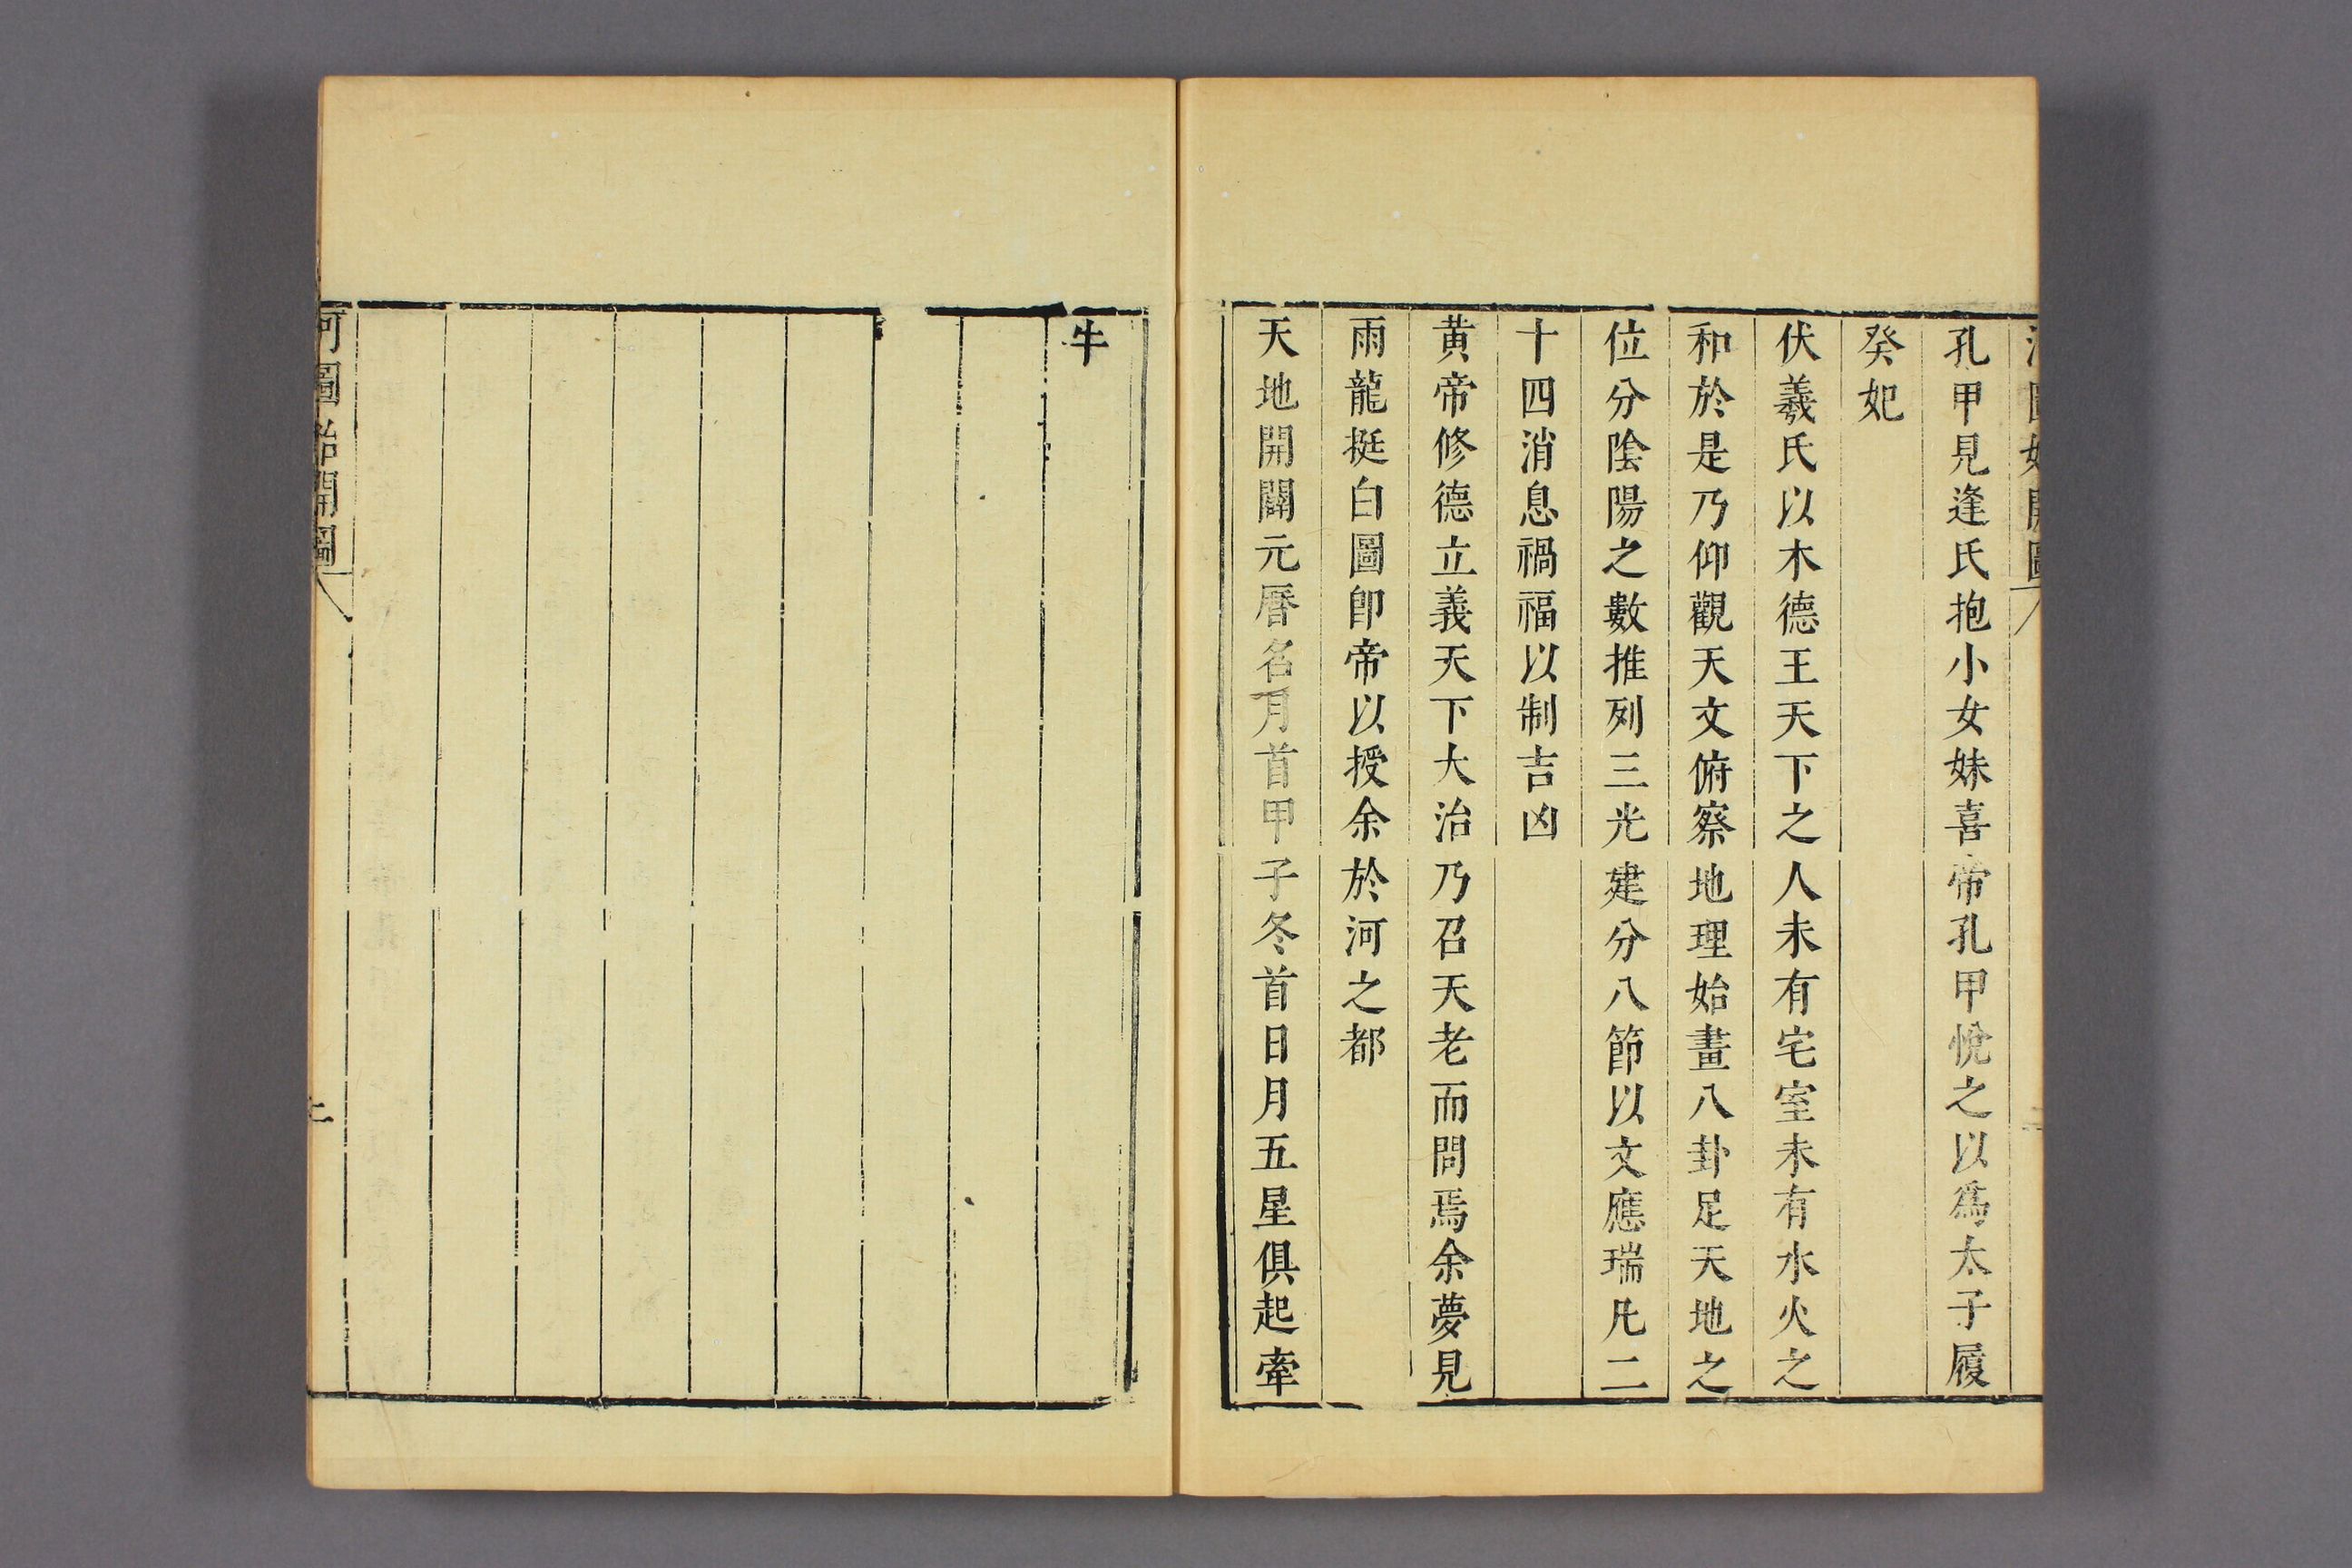 河圖始開圖
孔甲見逢氏抱小女妹喜帝孔甲悅之以爲太子履
癸妃
伏羲氏以木德王天下之人未有宅室未有水火之
和於是乃仰觀天文俯察地理始畫八卦足天地之
位分陰陽之數推列三光建分八節以文應瑞凡二
十四消息禍福以制吉凶
黃帝修德立義天下大治乃召天老而問焉余夢見
雨龍挺白圖卽帝以授余於河之都
天地開闢元曆名月首甲子冬首日月五星俱起牽
牛
河圖始開圖